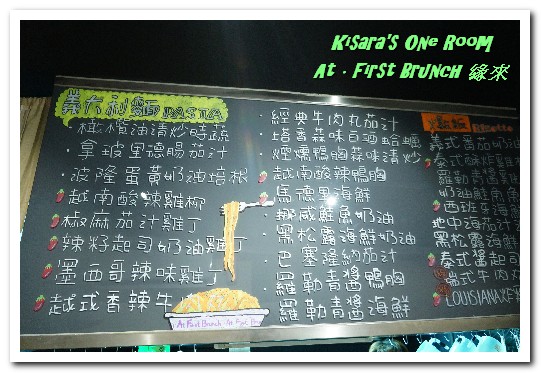 KISARA'S ONE ROOM
AT · FIRST BRUNCH 緣來
義大利麵 PASTA
·橄欖油清炒時蔬
·拿玻里德腸茄汁
·波隆蛋黃奶油培根
越南酸辣雞柳
椒麻茄汁雞丁
辣籽起司奶油雞丁
墨西哥辣味雞丁
越式香辣牛
·經典牛肉丸茄汁
·塔香蒜味白酒蛤蠣
·煙燻鴨胸蒜味清炒
越南酸辣鴨胸
·馬德里海鮮
·挪威鮭魚奶油
·黑松露海鮮奶油
·巴塞隆納茄汁
·羅勒青醬鴨胸
·羅勒青醬海鮮
燉飯 Risotto
義式番茄奶油
泰式酥炸雞
羅勒青醬
奶油鮭魚
西班牙
地中海茄汁
黑松露海鮮
泰式醬起司
瑞式牛肉丸
LOUISIANA
At First Brunch